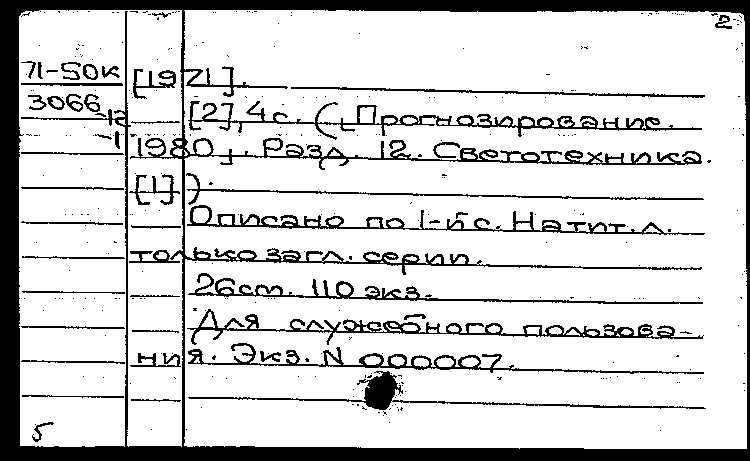 2
71-50к [1971].
3066 [2], 4 с. ([Прогнозирование.
-12
-1 1980]. Разд. 12. Светотехника.
[1]).
Описано по 1-й с. На тит. л.
только загл. серии.
26 см. 110 экз.
Для служебного пользова-
ния. Экз. N 000007.
5